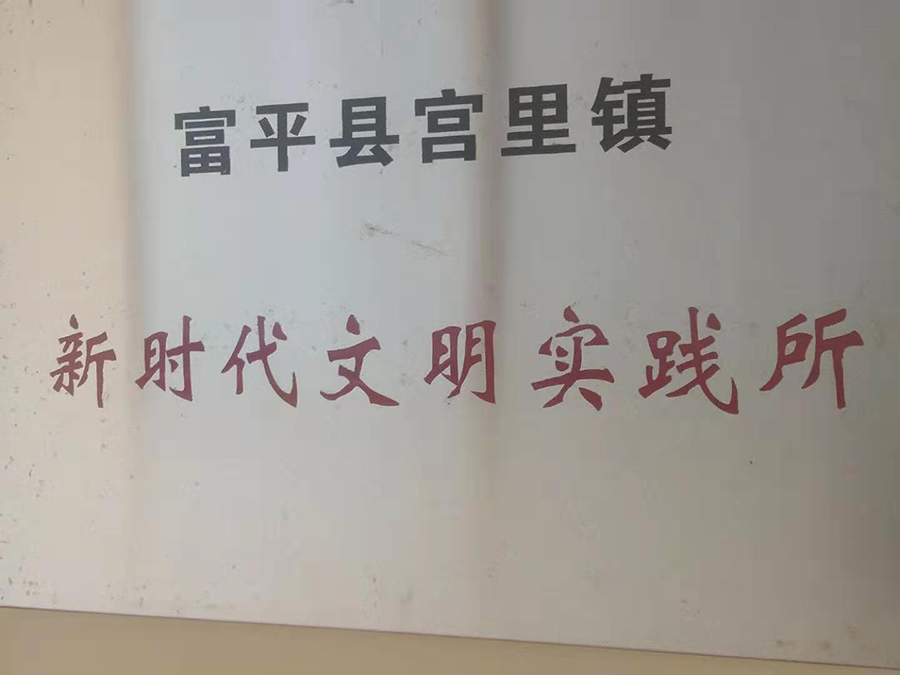 富平县宫里镇
新时代文明实践所